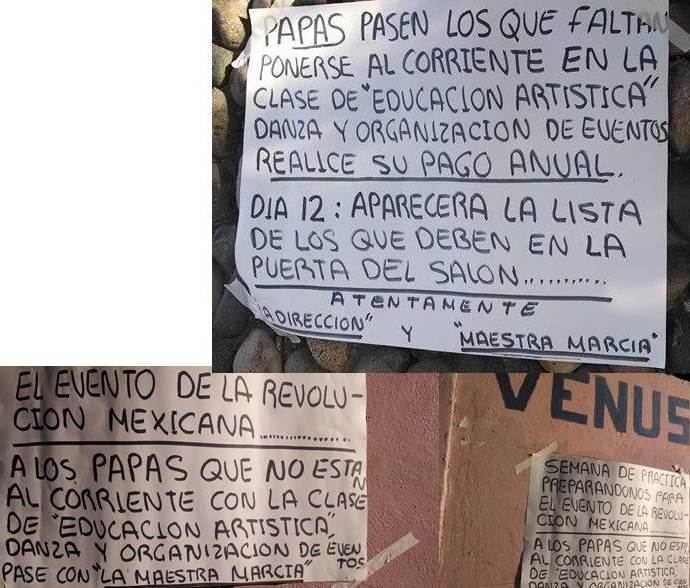 PAPAS PASEN LOS QUE FALTAN
PONERSE AL CORRIENTE EN LA
CLASE DE "EDUCACION ARTISTICA"
DANZA Y ORGANIZACION DE EVENTOS
REALICE SU PAGO ANUAL.
DIA 12: APARECERA LA LISTA
DE LOS QUE DEBEN EN LA
PUERTA DEL SALON..........
ATENTAMENTE
A DIRECCION" Y "MAESTRA MARCIA"
EL EVENTO DE LA REVOLU-
CION MEXICANA..................
A LOS PAPAS QUE NO ESTAN
AL CORRIENTE CON LA CLASE
DE "EDUCACION ARTISTICA",
DANZA Y ORGANIZACION DE EVENTOS
PASE CON "LA MAESTRA MARCIA"
VENUS
SEMANA DE PRACTICA
PREPARANDONOS PARA
EL EVENTO DE LA REVOLU-
CION MEXICANA..........
A LOS PAPAS QUE NO ESTA
AL CORRIENTE CON LA CLASE
DE "EDUCACION ARTISTICA
DANZA Y ORGANIZACION DE